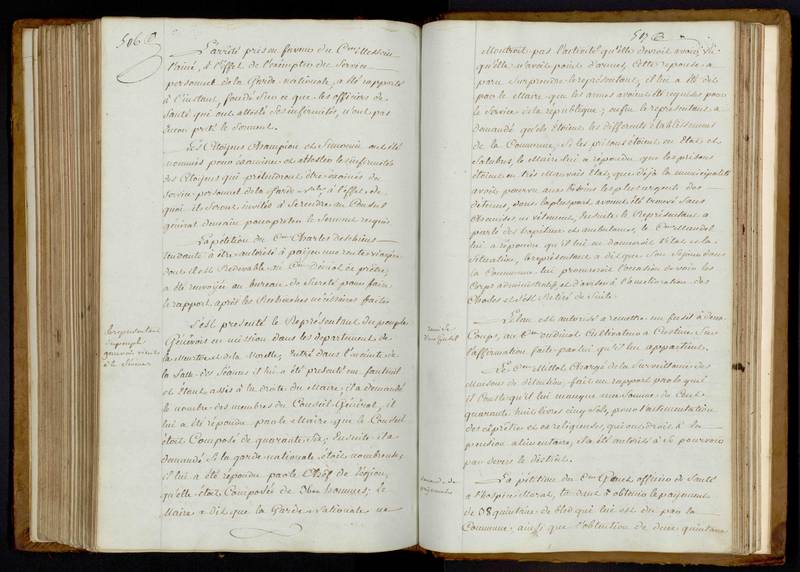 506
L'arrêté pris en faveur du Cen
l'ainé, à l'effet de l'exempter du Service
personnel de la Garde nationale, a été rapporté
à l'instant, fondé sur ce que les officiers de
Santé qui ont attesté ses infirmités, n'ont pas
encore prêté le Serment.
Les Citoyens Champion et Simonin ont été
nommés pour examiner et attester les infirmités
des Citoyens qui prétendront être exemtés du
Service personnel de la Garde natle, à l'effet de
quoi ils seront invités à se rendre au Conseil
général demain pour prêter le Serment requis
La pétition du Cen Charles
tendante à être autorisé à payer une rente viagère
dont il est Redevable au Cen prêtre,
a été renvoyée au bureau de Sureté pour faire
le rapport, après les Recherches nécessaires faites
le représentant
du peuple
S'est présenté le Représentant du peuple
Génevois en mission dans les département de
la Meurthe et de la Moselle, Entré dans l'enceinte de
la Salle des Séances il lui a été présenté un fauteuil
et étant assis à la droite du Maire, il a demandé
le nombre des membres du Conseil Général, il
lui a été répondu par le Maire que le Conseil
étoit Composé de quarante six; Ensuite il a
demandé si la garde nationale étoit nombreuse;
il lui a été répondu par le Chef de légion,
qu'elle étoit Composée de hommes; le
Maire a dit que la Garde nationale ne
507
Montroit pas l'activité qu'elle devroit avoir, vû
qu'elle n'avoit point d'armes, Cette reponse a
paru surprendre le représentant, il lui a été dit
par le Maire que les armes avoient été requises pour
le Service de la république; enfin le représentant a
demandé quels étoient les differents établissements
de la Commune, Si les prisons étoient en Etat et
Salubres, le Maire lui a répondu que les prisons
étoient en très Mauvais Etat, que déja la municipalité
avoit pourvu aux besoins les plus urgents des
détenus, dont la plus part avoient été trouvé Sans
Chemises, ni vêtement, Ensuite le Représentant a
parlé des hopitaux et ambulances, le Cen
lui a répondu qu'il lui en donneroit l'Etat et la
Situation, le représentant a dit que Son Sejour dans
la Commune lui procureroit l'occasion de voir les
Corps administratifs et d'aviser à l'amélioration des
Choses et s'est Retiré de Suite.
remise
d'un fusil
est autorisé a remettre un fusil à deux
Coups, au Cen Cultivateur à Custine Sur
l'affirmation faite par lui qu'il lui appartient.
Le Cen Millot Chargé de la Surveillance des
Maisons de détention, fait un rapport par lequel
il Conste qu'il lui manque une Somme de Cent
quarante huit livres cinq sols, pour l'alimentation
des prêtres et ex religieuses, qui ont droit à la
pension alimentaire, il a été autorisé à se pourvoir
par devers le district.
La pétition du Cen officier de Santé
à l'hospice Marat, tendante à obtenir le payement
de 38 quintaux de bled qui lui est du par la
Commune, ainsi que l'obtention de deux quintaux